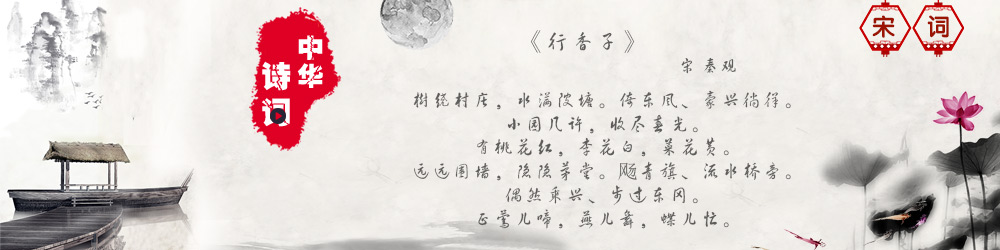 中华
诗词
《行香子》
宋 秦观
树绕村庄，水满陂塘。倚东风、豪兴徜徉。
小园几许，收尽春光。
有桃花红，李花白，菜花黄。
远远围墙，隐隐茅堂。飏青旗、流水桥旁。
偶然乘兴、步过东冈。
正莺儿啼，燕儿舞，蝶儿忙。
宋词